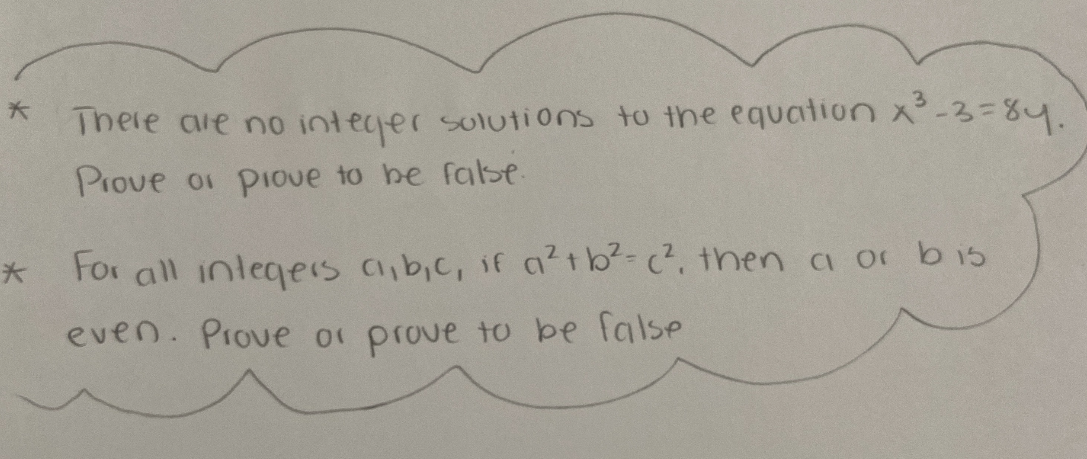 * There are no integer solutions to the equation x³-3=8y.
Prove or prove to be false.
* For all integers a,b,c, if a²+b²=c², then a or b is
even. Prove or prove to be false